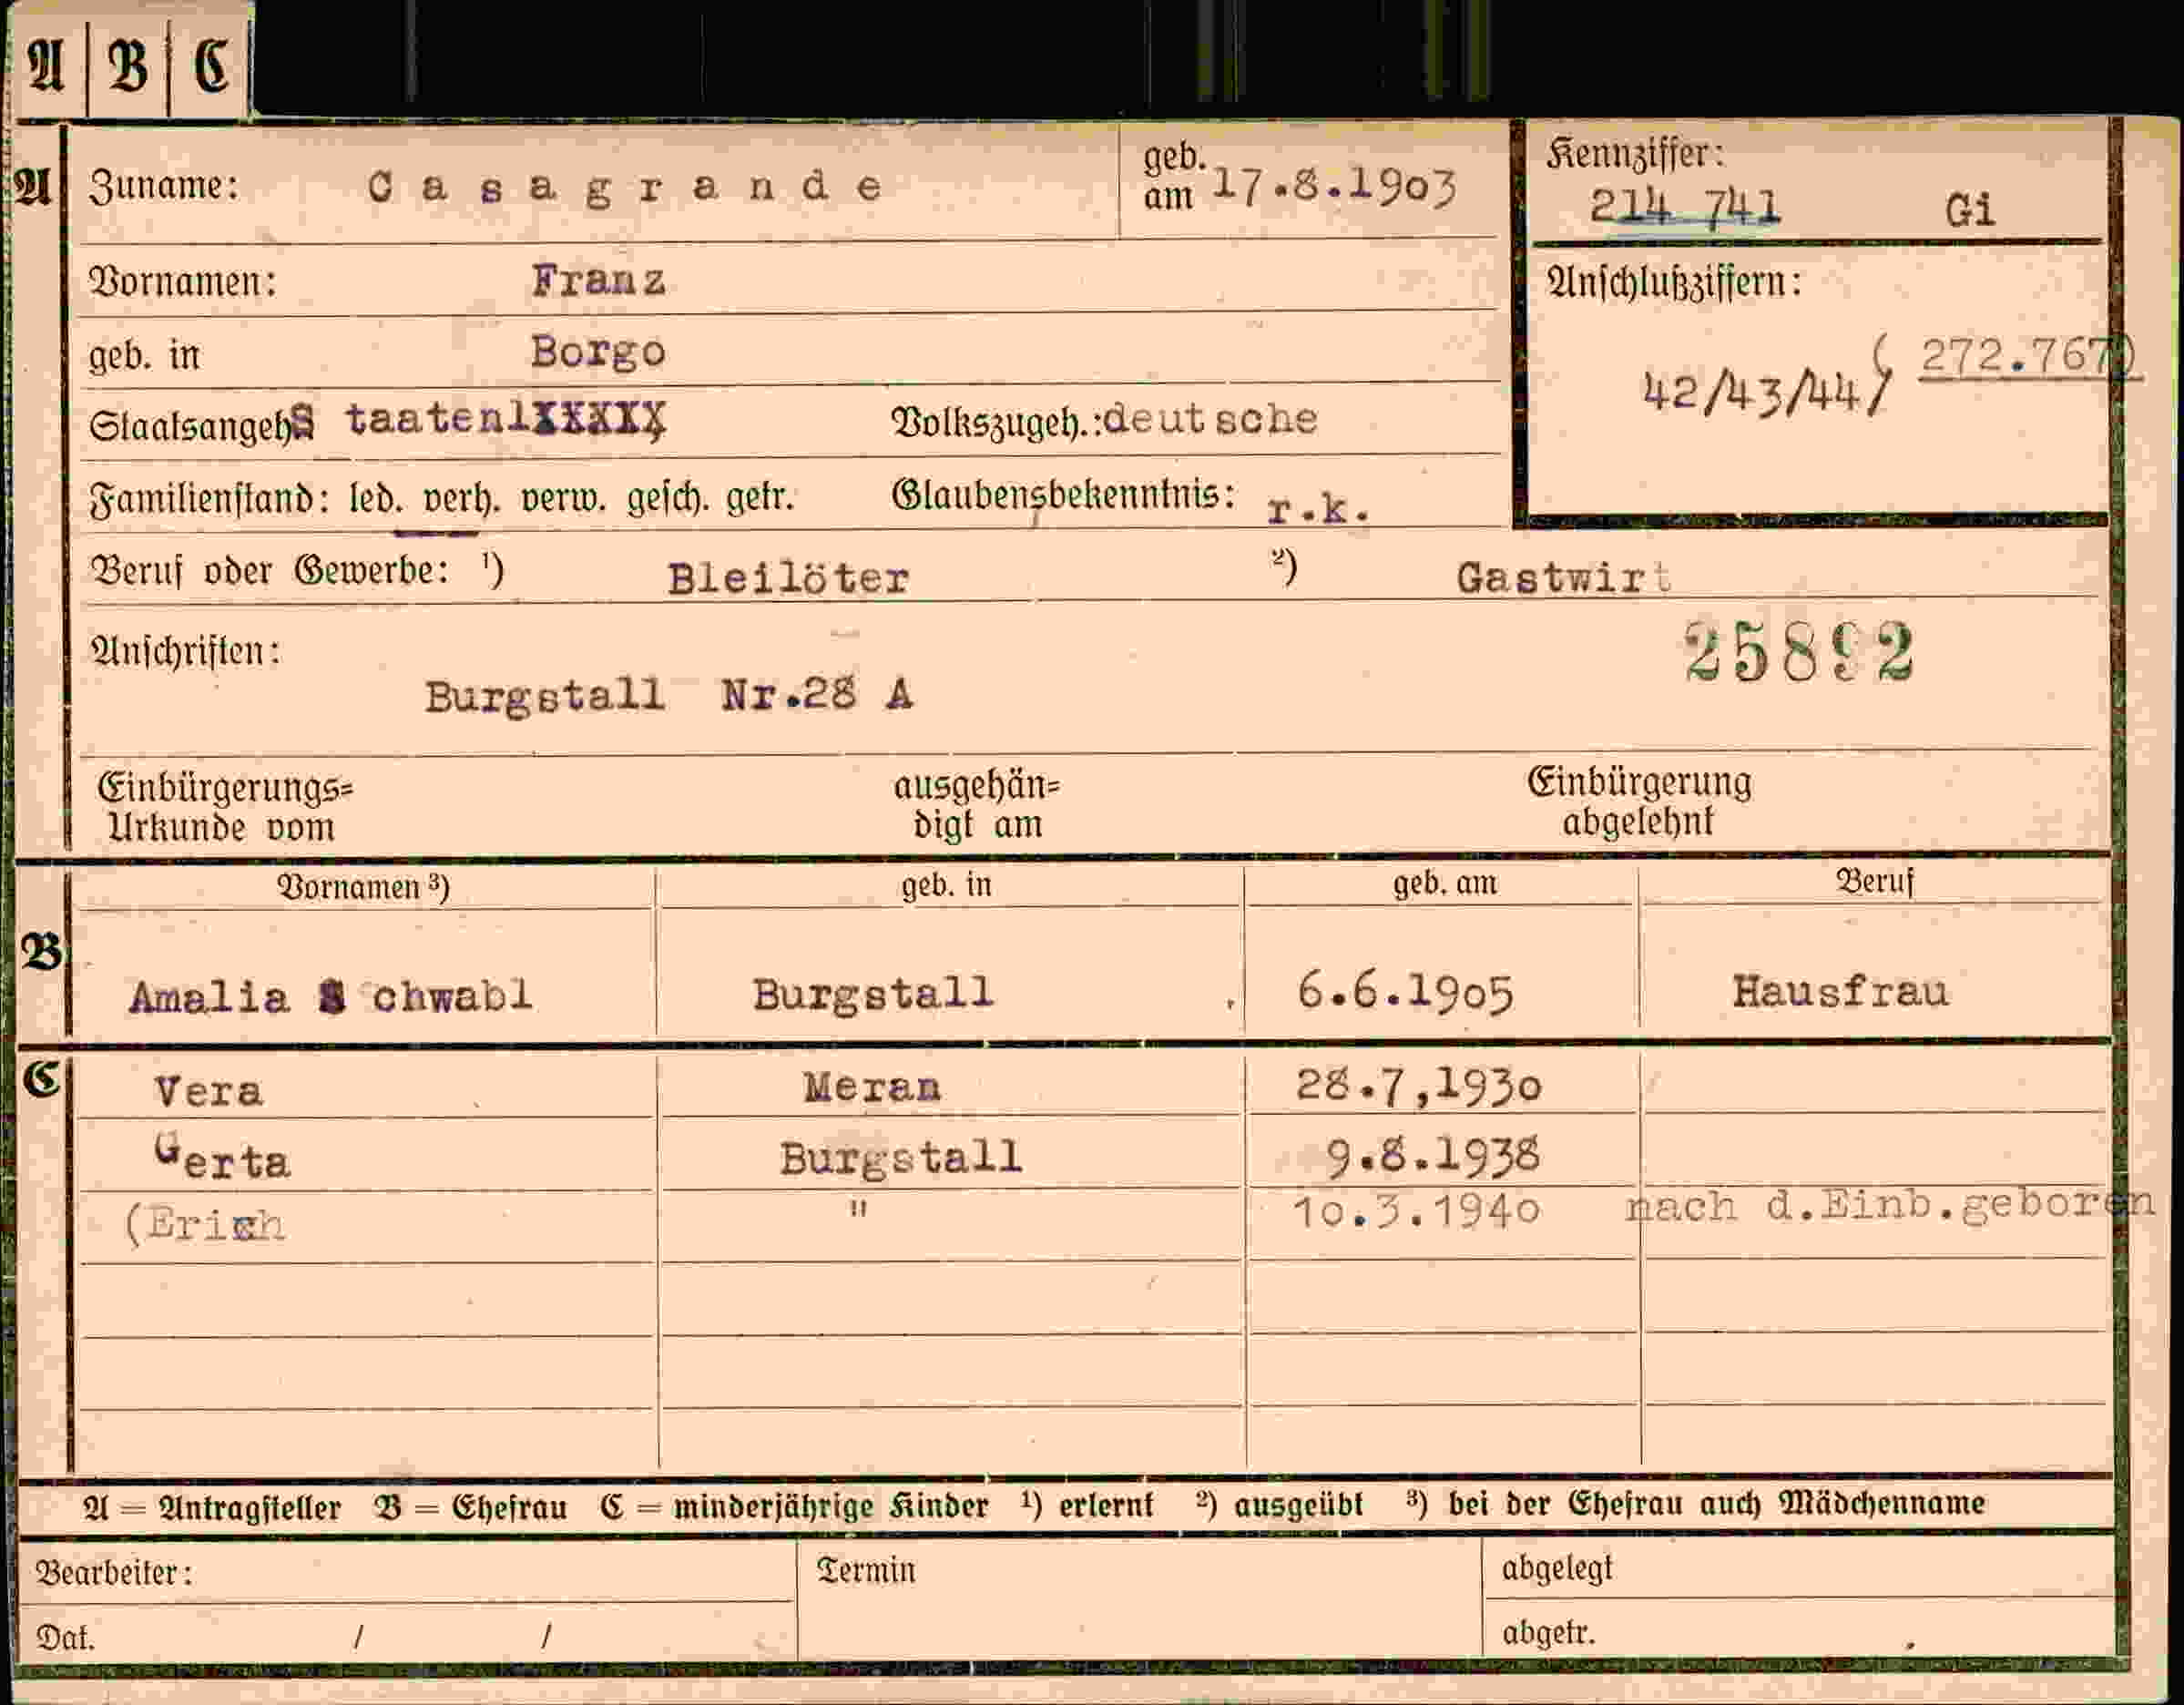 A | B | C
A Zuname: Casagrande geb. am 17.8.1903 Kennziffer: 214 741 Gi
Vornamen: Franz
geb. in Borgo
Anschlußziffern: 42/43/44/ (272.767)
Staatsangeh. S taatenlXXXXX Volkszugeh.: deutsche
Familienstand: led. verh. verw. gesch. getr. Glaubensbekenntnis: r.k.
Beruf oder Gewerbe: ¹) Bleilöter ²) Gastwirt
Anschriften: 25892
Burgstall Nr.28 A
Einbürgerungs= ausgehän= Einbürgerung
Urkunde vom digt am abgelehnt
Vornamen ³) geb. in geb. am Beruf
B Amalia S chwabl Burgstall 6.6.1905 Hausfrau
C Vera Meran 28.7,1930
Gerta Burgstall 9.8.1938
(Erich " 10.3.1940 nach d.Einb.geboren
A = Antragsteller B = Ehefrau C = minderjährige Kinder ¹) erlernt ²) ausgeübt ³) bei der Ehefrau auch Mädchenname
Bearbeiter: Termin abgelegt
Dat. / / abgetr.